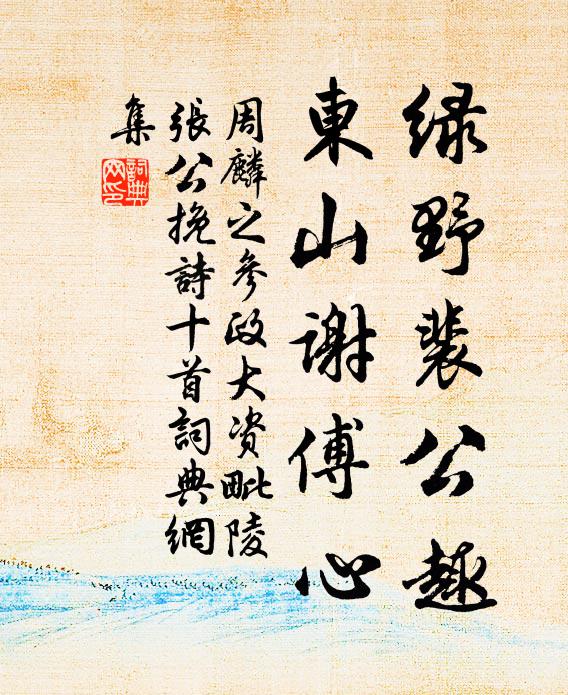 绿野裴公趣
東山谢傅心
周麟之参政大资毗陵
張公挽詩十首詞典網
集
詞典
网印